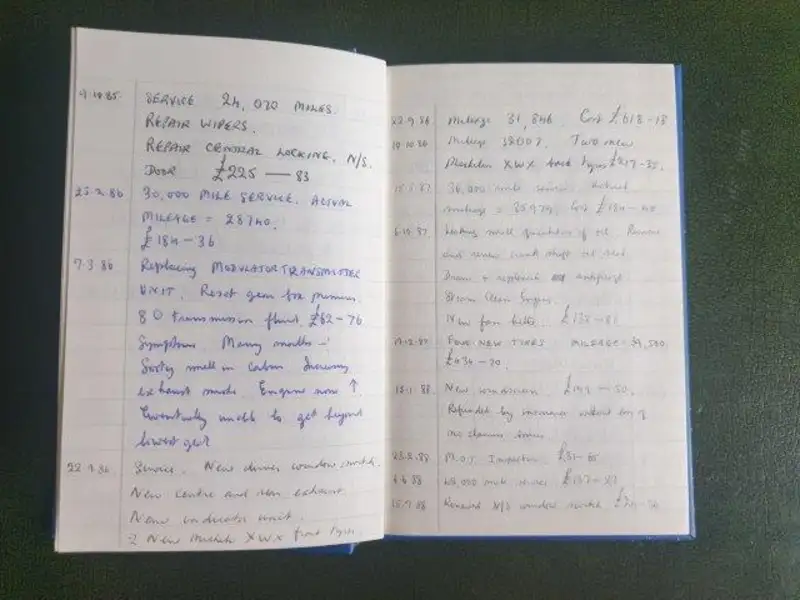 9.10.85. SERVICE 24,030 MILES.
REPAIR WIPERS.
REPAIR CENTRAL LOCKING. N/S.
DOOR £225 — 83
25.2.86 30,000 MILE SERVICE. ACTUAL
MILEAGE = 28740.
£184 – 36
7.3.86 Replacing MODULATOR TRANSMITTER
UNIT. Reset gear box
transmission fluid. £62–76
Symptoms. Many months –
Sooty smell in cabin Increasing
exhaust smoke. Engine now ↑.
Eventually unable to get beyond
lowest gear
22.9.86. Service. New driver window switch.
New centre and rear exhaust
New indicator unit.
2 New Michelin XWX front tyres.
22.9.86 Mileage 31,846 Cost £618–13
Mileage 32007. Two new
Michelin XWX back tyres £217–35.
36,000 mile service Actual
mileage = 35979. Cost £184 –
6.10.87. Leaking small quantities of oil. Remove
and renew crank shaft oil seal
Drain & replace antifreeze
Steam Clean Engine.
New fan belts. £132–
FOUR NEW TYRES MILEAGE =
£434–20.
15.1.88 New windscreen.
Refunded by insurance without loss of
no claims bonus.
M.O.T. Inspection.
mile service
15.9.88 Renewed N/S window switch